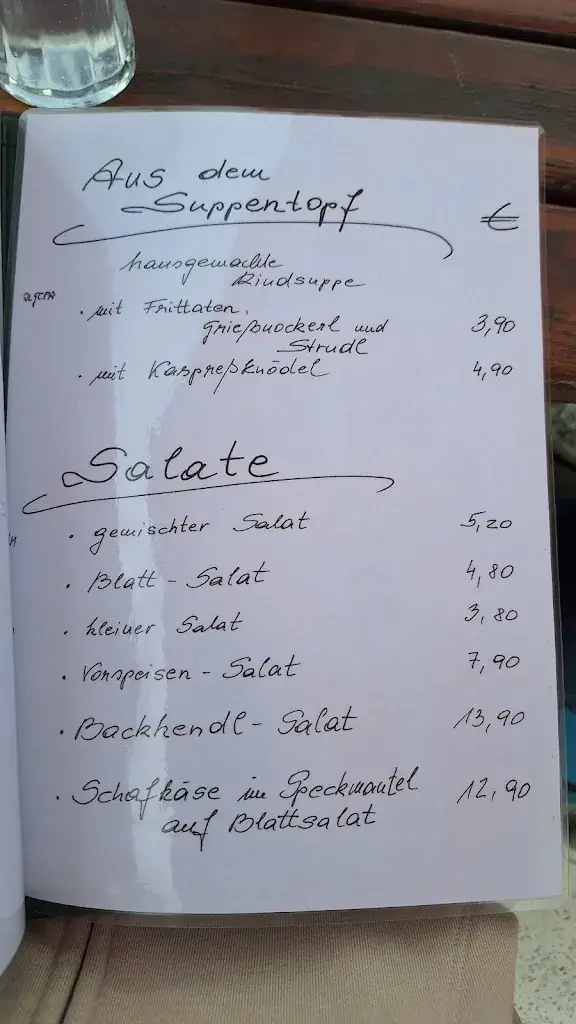 Aus dem
Suppentopf
€
hausgemachte
Rindsuppe
· mit Frittaten,
Grießnockerl und
Strudl 3,90
· mit Kaspreßknödel 4,90
Salate
· gemischter Salat 5,20
· Blatt - Salat 4,80
· kleiner Salat 3,80
· Vorspeisen - Salat 7,90
· Backhendl - Salat 13,90
· Schafkäse im Speckmantel 12,90
auf Blattsalat